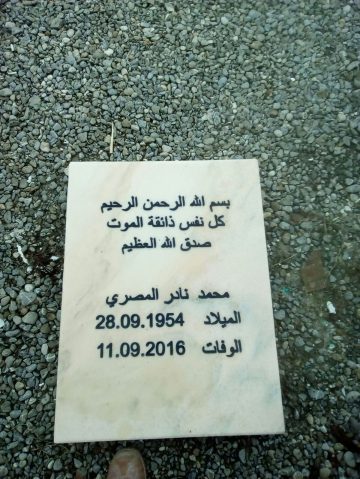 بسم الله الرحمن الرحيم
كل نفس ذائقة الموت
صدق الله العظيم
محمد نادر المصري
الميلاد 28.09.1954
الوفات 11.09.2016